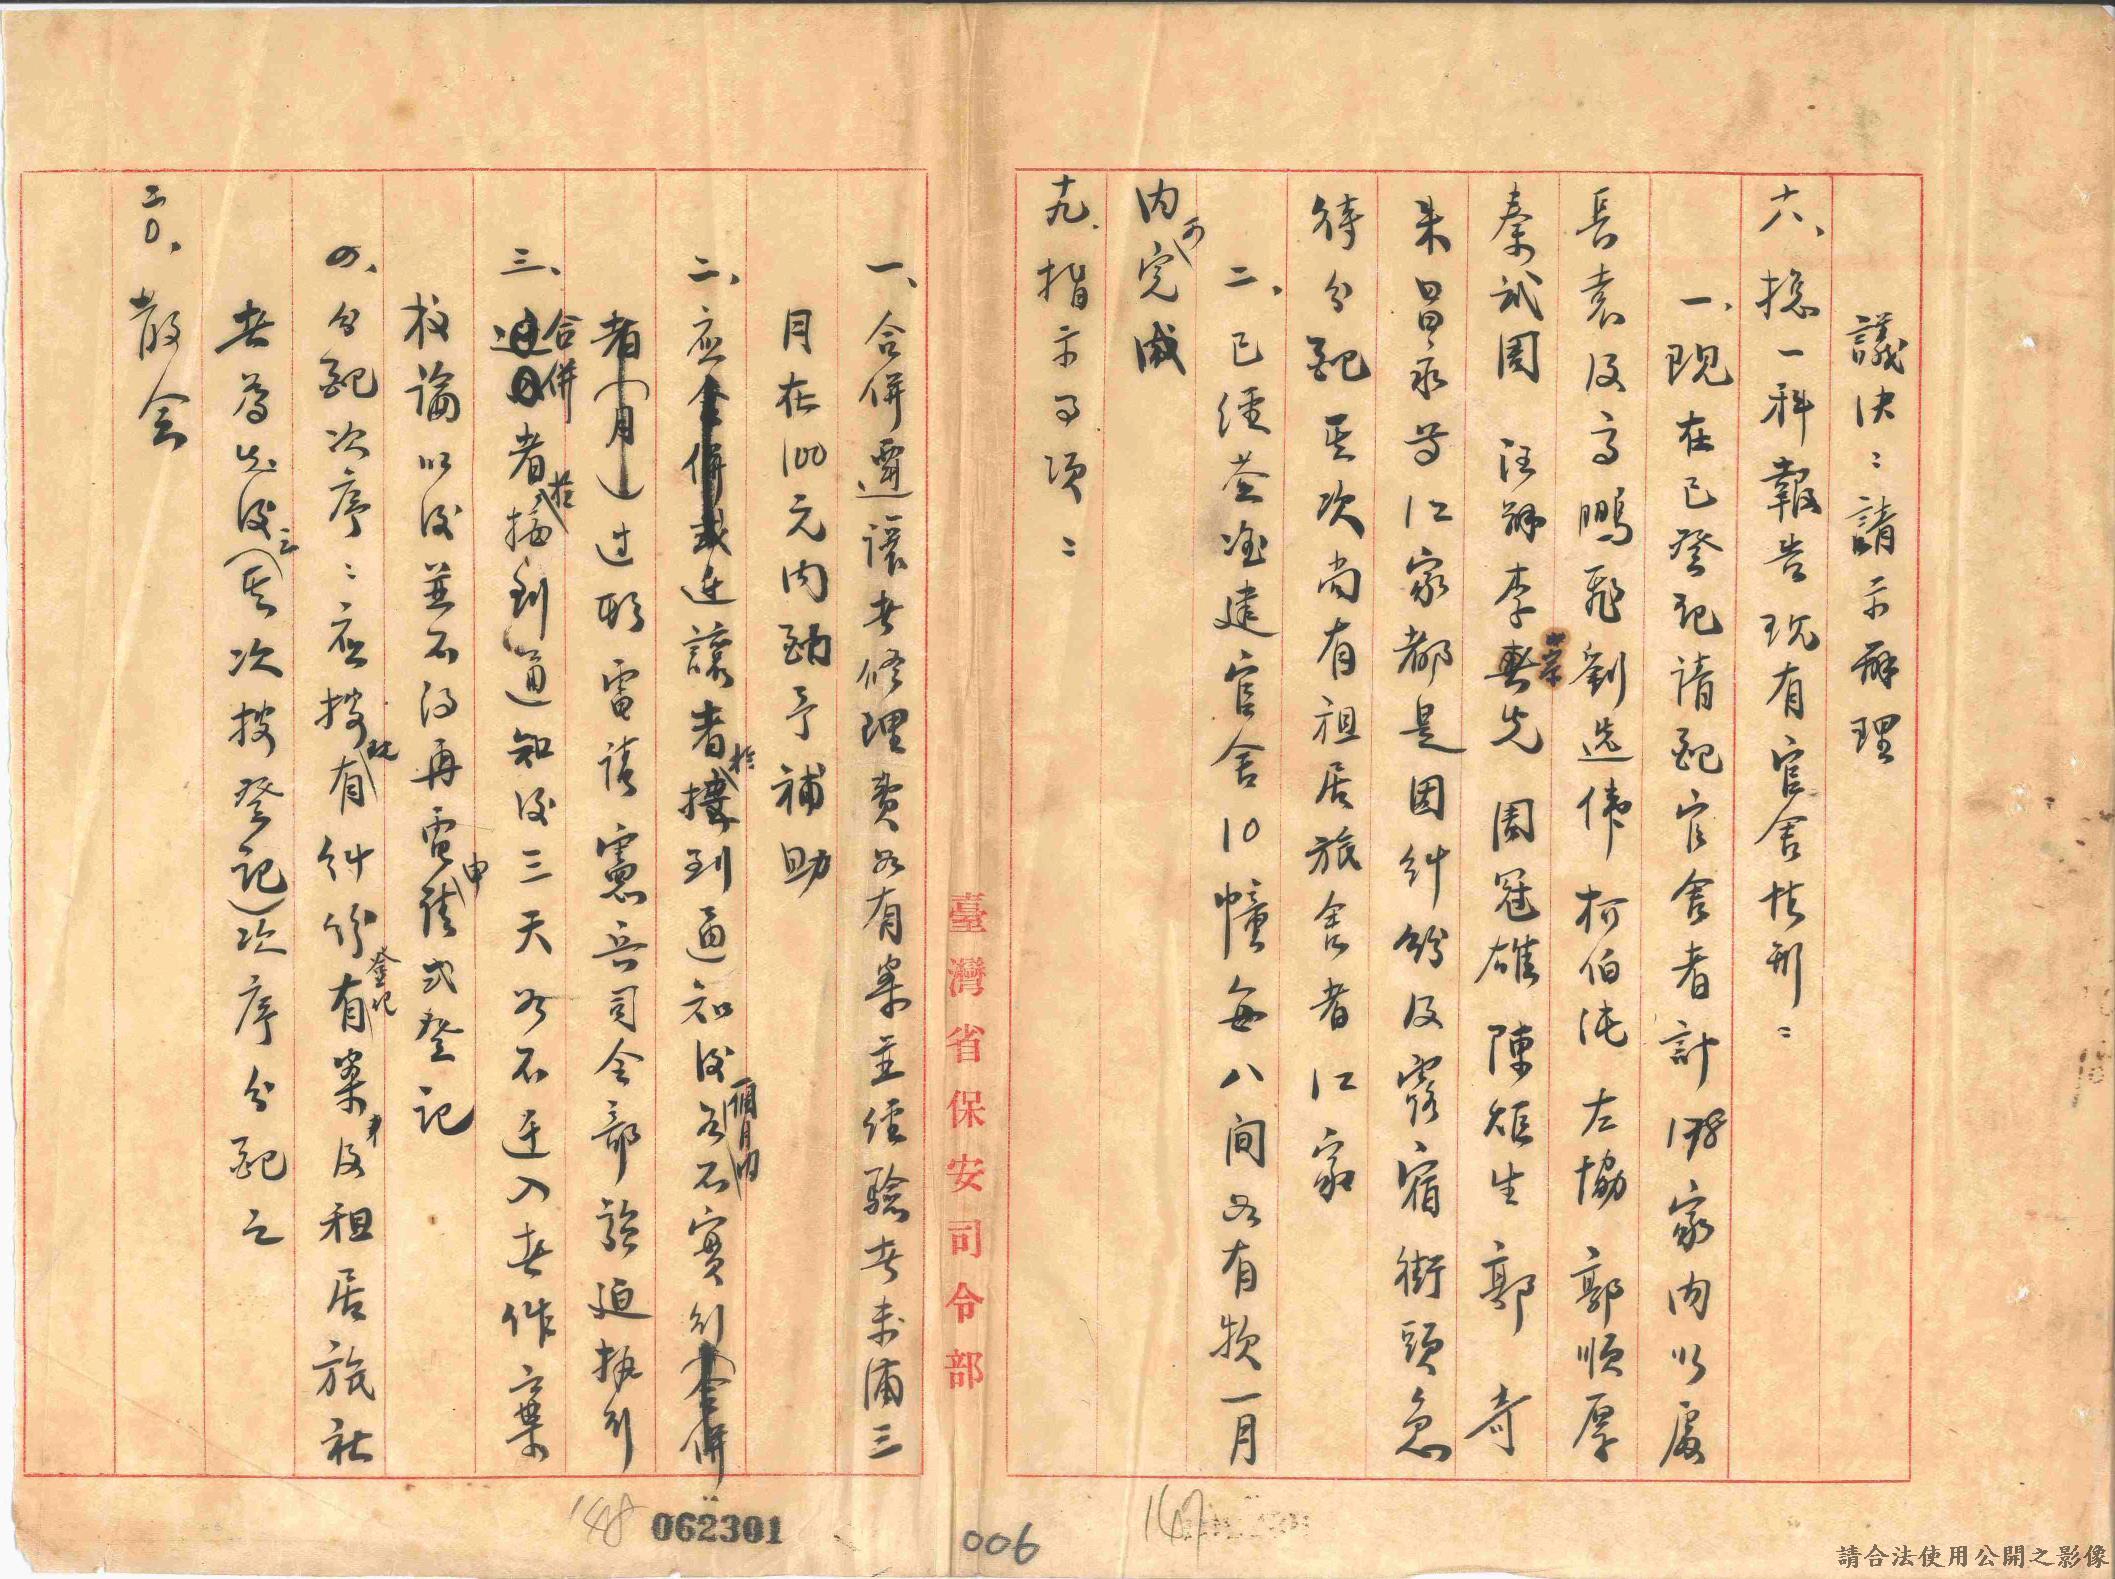 議決：請示辦理
六、總一科報告現有官舍情形：
一、現在已登記請配官舍者計 家內以屬
長袁及高鵬飛劉逸偉柯伯 左協 郭順厚
秦 周 汪 李宗先 周冠雄 陳炬生 郭 奇
朱昌 等江家都是因糾紛及露宿街頭急
待分配其次尚有租居旅舍者江家
二、已經 准建官舍10幢每八間 有 一月
內可完成
十九、指示事項：
一、合併遷讓者修理費如有案並經驗者未滿三
月在100元內酌予補助
二、應遷讓者於接到通知後一個月內如不實行
過期電請憲兵司令部強迫執行
三、合併者於接到通知後三天如不遷入者作棄
权論以後並不得再電申請或登記
四、分配次序：應按現有糾紛有案及租居旅社
者為先後之(其次按登記)次序分配之
二〇、散会
臺灣省保安司令部
148
062301
006
147
請合法使用公開之影像